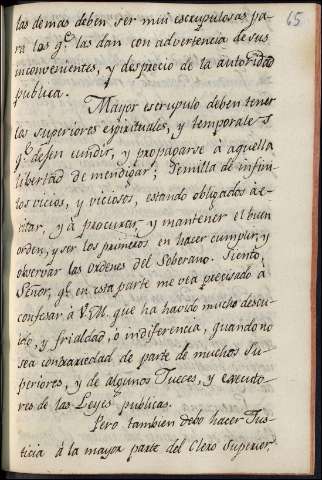 65
las demas deben ser mui escrupulosas pa-
ra los q.e las dan con advertencia de sus
inconvenientes, y desprecio de la autoridad
publica.
Mayor escrupulo deben tener
los superiores espirituales, y temporales
q.e dejen cundir, y propagarse à aquella
libertad de mendigar; semilla de infini-
tos vicios, y viciosos, estando obligados à e-
vitar, y à procurar, y mantener el buen
orden, y ser los primeros en hacer cumplir, y
observar las ordenes del Soberano. Siento,
Señor, q.e en esta parte me vea precisado à
confesar à V.M. que ha havido mucho descui-
do, y frialdad, o indiferencia, quando no
sea contrariedad de parte de muchos Su-
periores, y de algunos Jueces, y executo-
res de las Leyes publicas.
Pero tambien debo hacer Jus-
ticia à la mayor parte del Clero Superior,